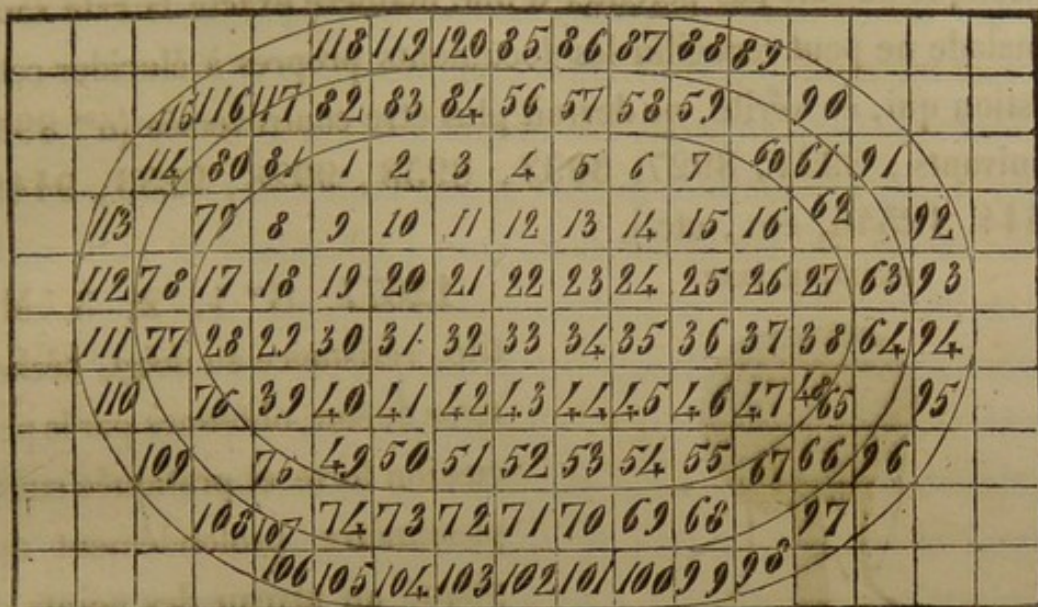 118 119 120 85 86 87 88 89
115 116 117 82 83 84 56 57 58 59 90
114 80 81 1 2 3 4 5 6 7 60 61 91
113 79 8 9 10 11 12 13 14 15 16 62 92
112 78 17 18 19 20 21 22 23 24 25 26 27 63 93
111 77 28 29 30 31 32 33 34 35 36 37 38 64 94
110 76 39 40 41 42 43 44 45 46 47 48 65 95
109 75 49 50 51 52 53 54 55 67 66 96
108 107 74 73 72 71 70 69 68 97
106 105 104 103 102 101 100 99 98